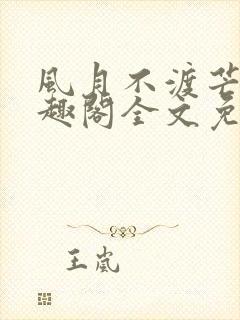 風月不渡芒
趣閣全文免
王嵐